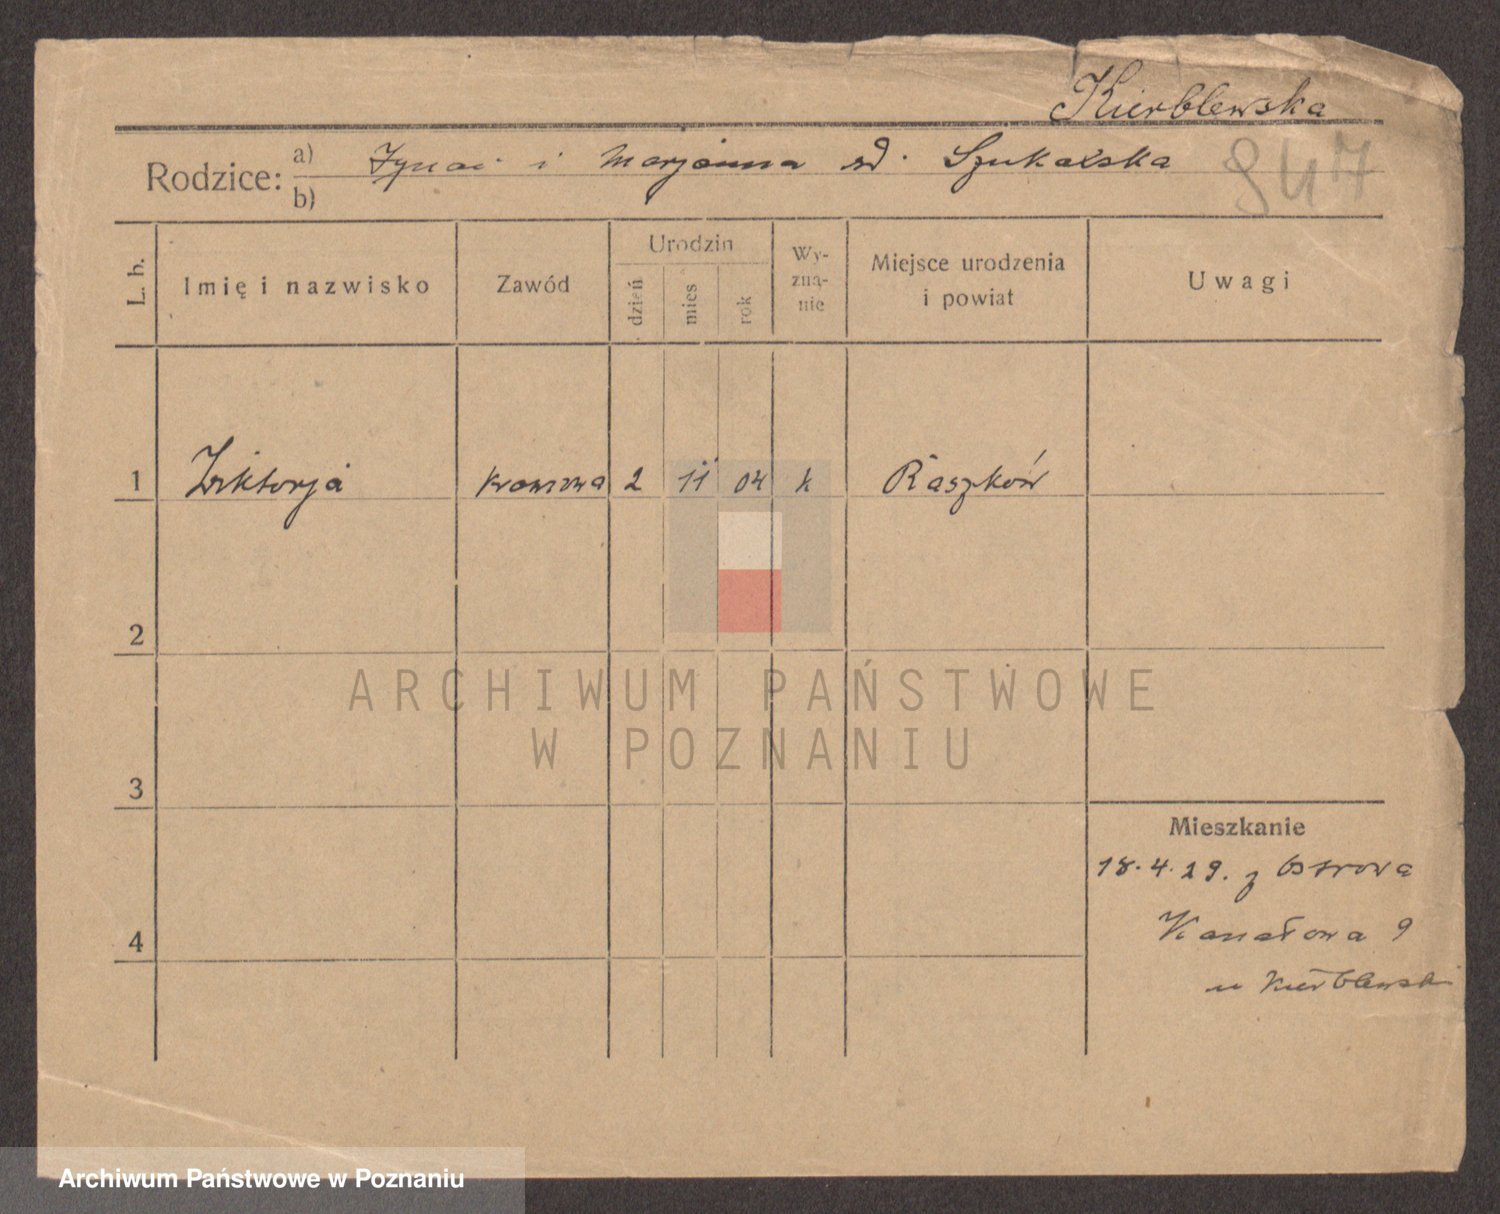 Kierblewska
Rodzice: a) Ignac i Marjanna sd. Szukalska
b)
947
L. b. Imię i nazwisko Zawód Urodzin dzień mies rok Wy-zna-nie Miejsce urodzenia i powiat Uwagi
1 Wiktorja krawcowa 2 11 04 k Raszków
2
ARCHIWUM PAŃSTWOWE
W POZNANIU
3
Mieszkanie
18.4.29. z Ostrowa
4
Kanałowa 9
u Kierblewski
Archiwum Państwowe w Poznaniu